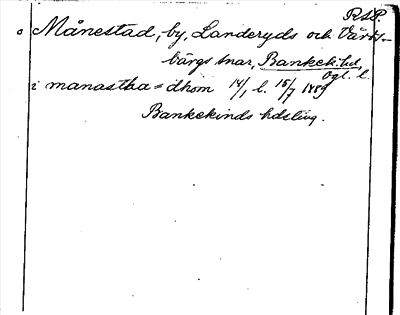 RAP.
o Månestad, by, Landeryds och Vårds-
bärgs snar, Bankek. hd,
Ögl. l.
i manastha = dhom 14/1 l. 15/7 1459
Bankekinds hdsting.